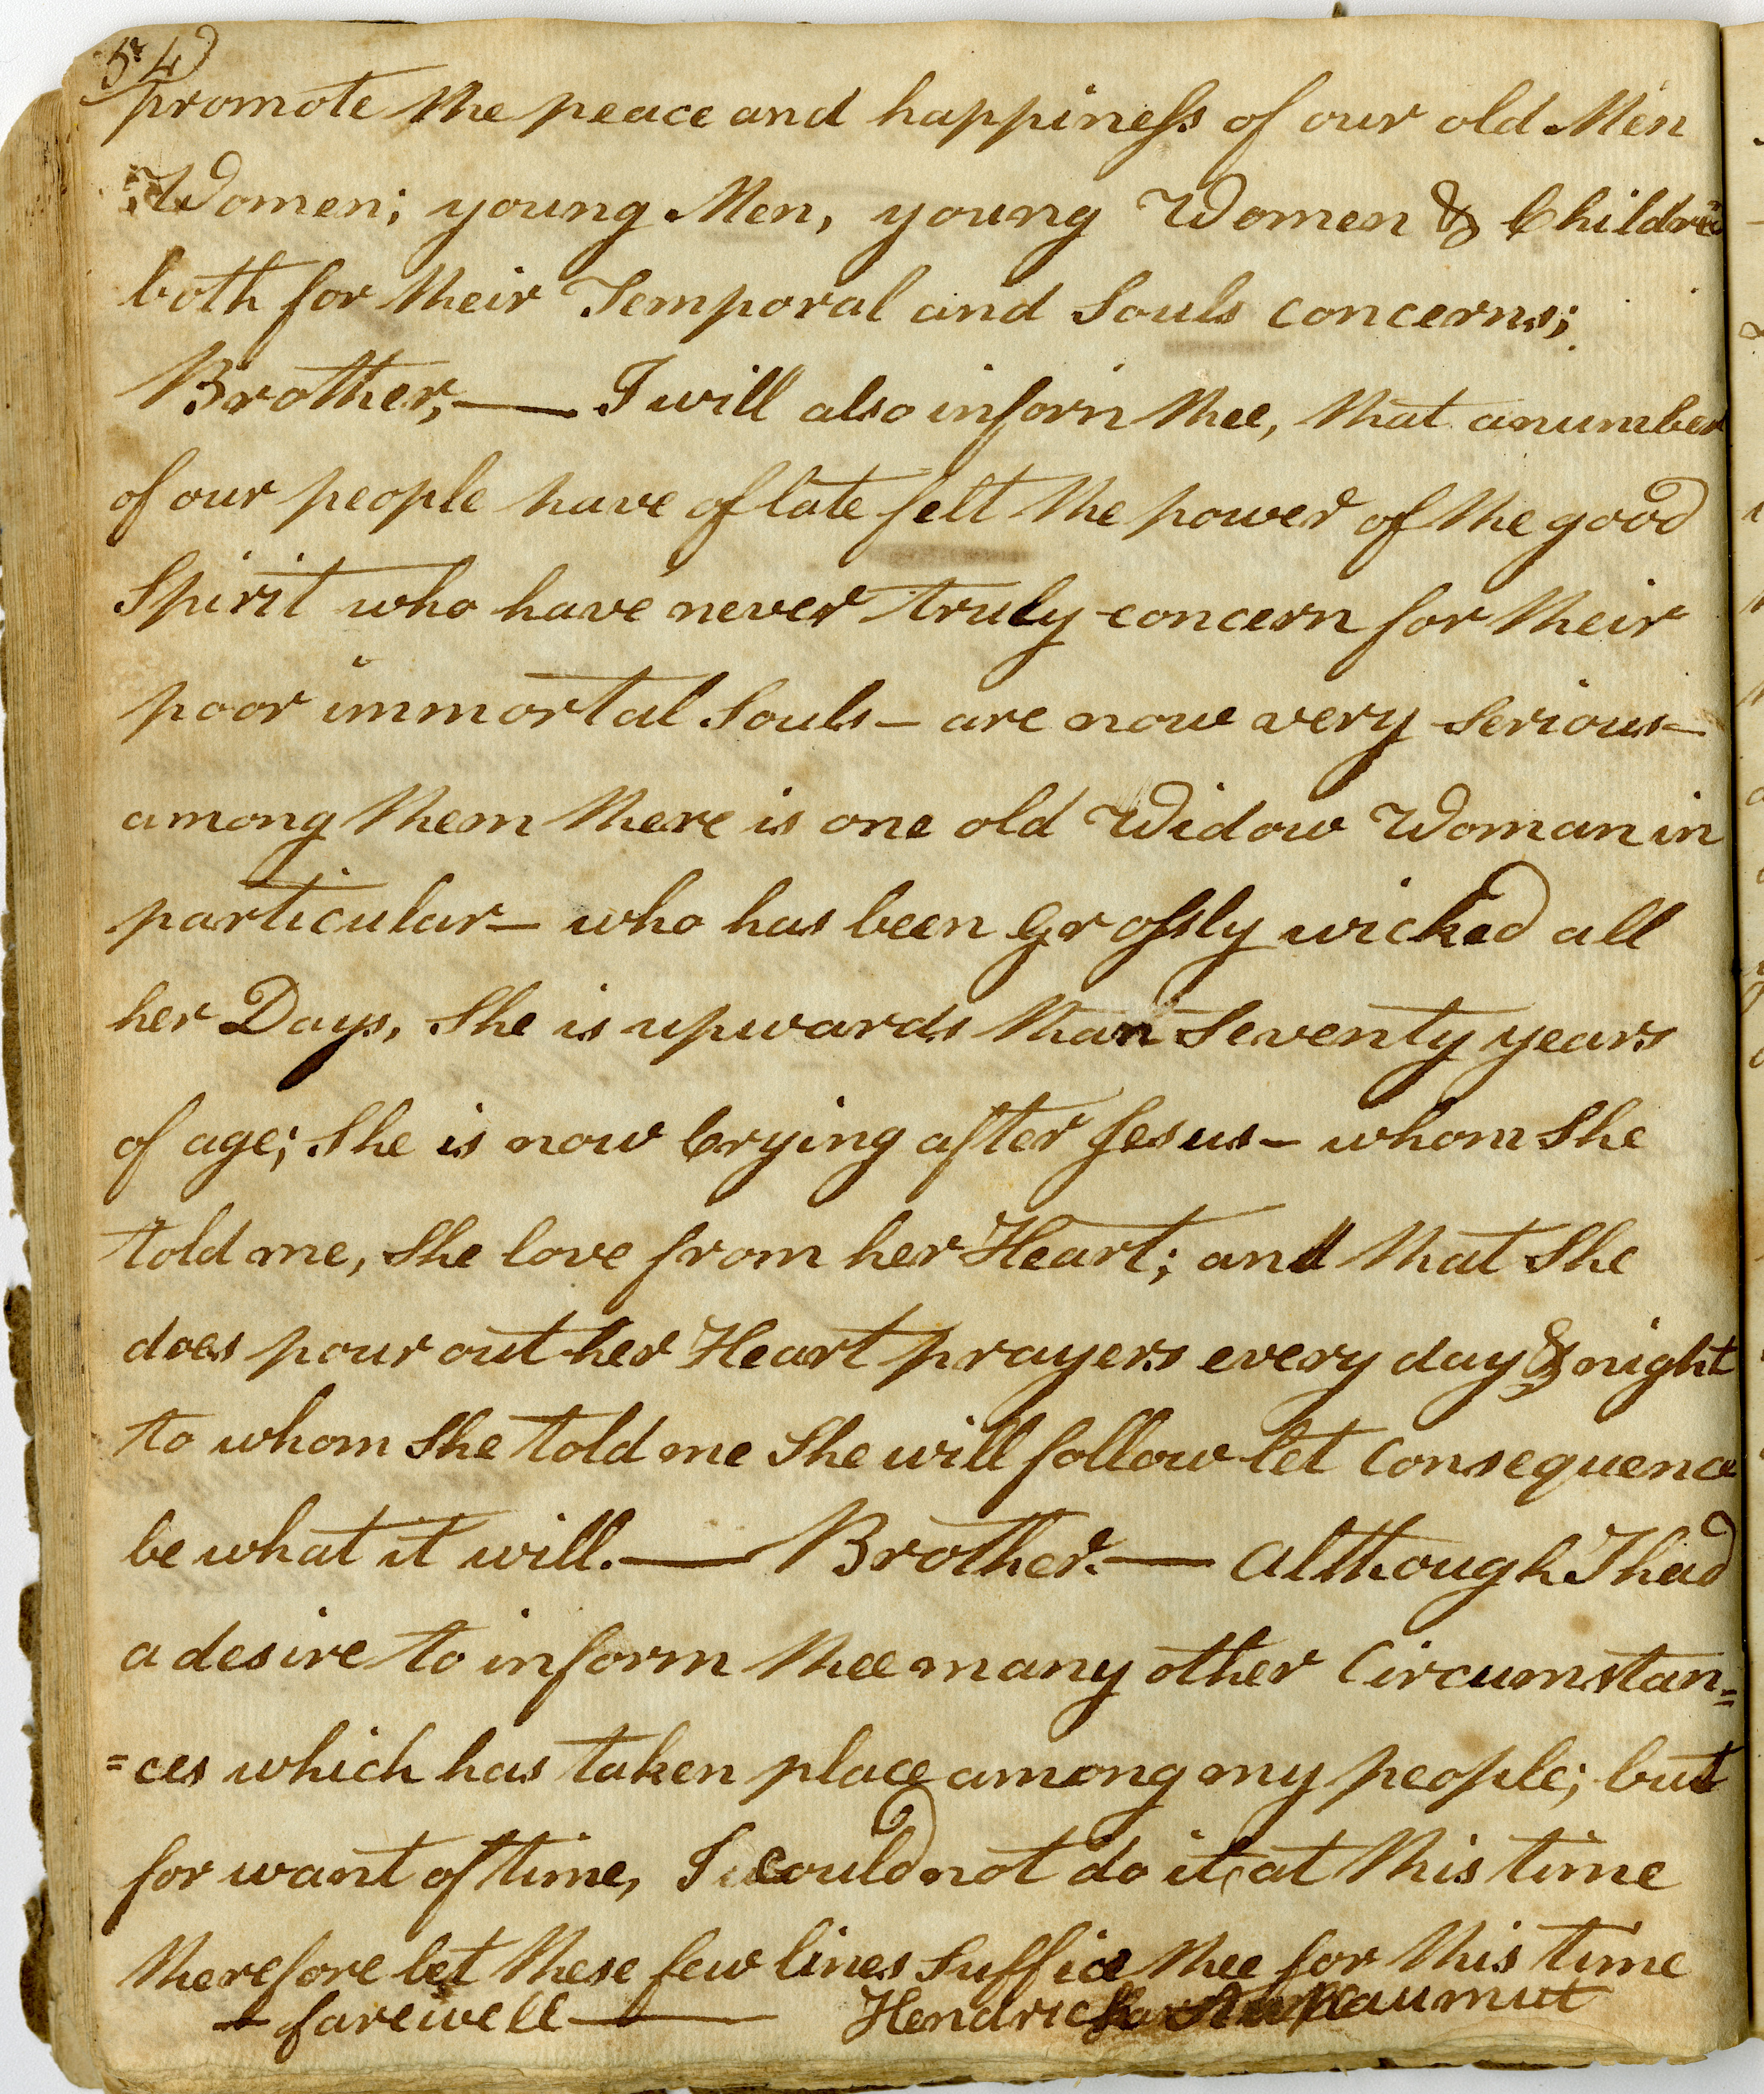 54
promote the peace and happiness of our old Men
Women; young Men, young Women & Children
both for their Temporal and Souls concerns;
Brother, — I will also inform thee, that a number
of our people have of late felt the power of the good
Spirit who have never truly concern for their
poor immortal Souls — are now very serious —
among them there is one old Widow Woman in
particular — who has been grossly wicked all
her Days, She is upwards than Seventy years
of age; She is now Crying after Jesus — whom She
told me, She love from her Heart; and that She
does pour out her Heart prayers every day & night
to whom She told me She will follow let Consequence
be what it will. — Brother. — although I had
a desire to inform thee many other Circumstan=
=ces which has taken place among my people; but
for want of time, I could not do it at this time
therefore let these few lines Suffice thee for this time
— farewell — Hendrick Aupaumut